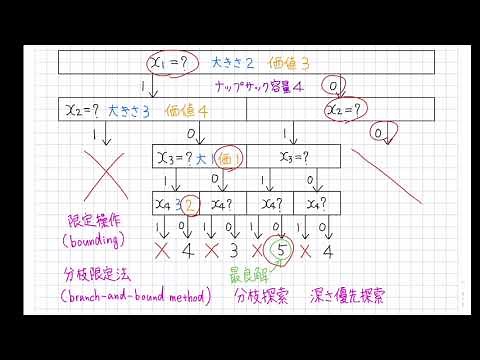 x₁=? 大きさ2 価値3
1 ナップサック容量4 0
x₂=? 大きさ3 価値4 x₂=?
1 0 1 0
x₃=? 大1 価1 x₃=?
1 0 1 0
x₄ 3 2 x₄? x₄? x₄?
1 0 1 0 1 0 1 0
× 4 × 3 × 5 × 4
限定操作
(bounding)
最良解
分枝限定法
(branch-and-bound method) 分枝探索 深さ優先探索